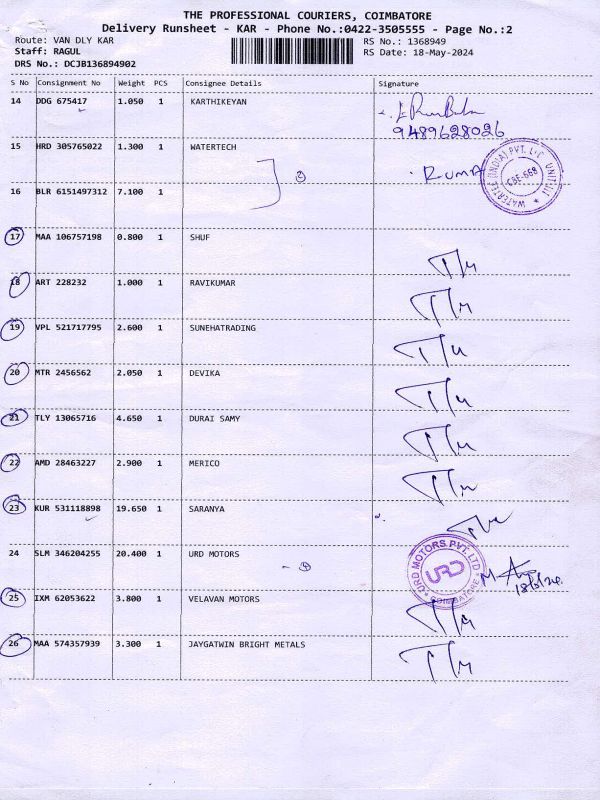 THE PROFESSIONAL COURIERS, COIMBATORE
Delivery Runsheet - KAR - Phone No.:0422-3505555 - Page No.:2
Route: VAN DLY KAR RS No.: 1368949
Staff: RAGUL RS Date: 18-May-2024
DRS No.: DCJB136894902
S No Consignment No Weight PCS Consignee Details Signature
14 DDG 675417 1.050 1 KARTHIKEYAN
9489628026
15 HRD 305765022 1.300 1 WATERTECH
16 BLR 6151497312 7.100 1
17 MAA 106757198 0.800 1 SHUF
18 ART 228232 1.000 1 RAVIKUMAR
19 VPL 521717795 2.600 1 SUNEHATRADING
20 MTR 2456562 2.050 1 DEVIKA
21 TLY 13065716 4.650 1 DURAI SAMY
22 AMD 28463227 2.900 1 MERICO
23 KUR 531118898 19.650 1 SARANYA
24 SLM 346204255 20.400 1 URD MOTORS
URD MOTORS PVT. LTD
URD
COIMBATORE
18/5/24.
25 IXM 62053622 3.800 1 VELAVAN MOTORS
26 MAA 574357939 3.300 1 JAYGATWIN BRIGHT METALS